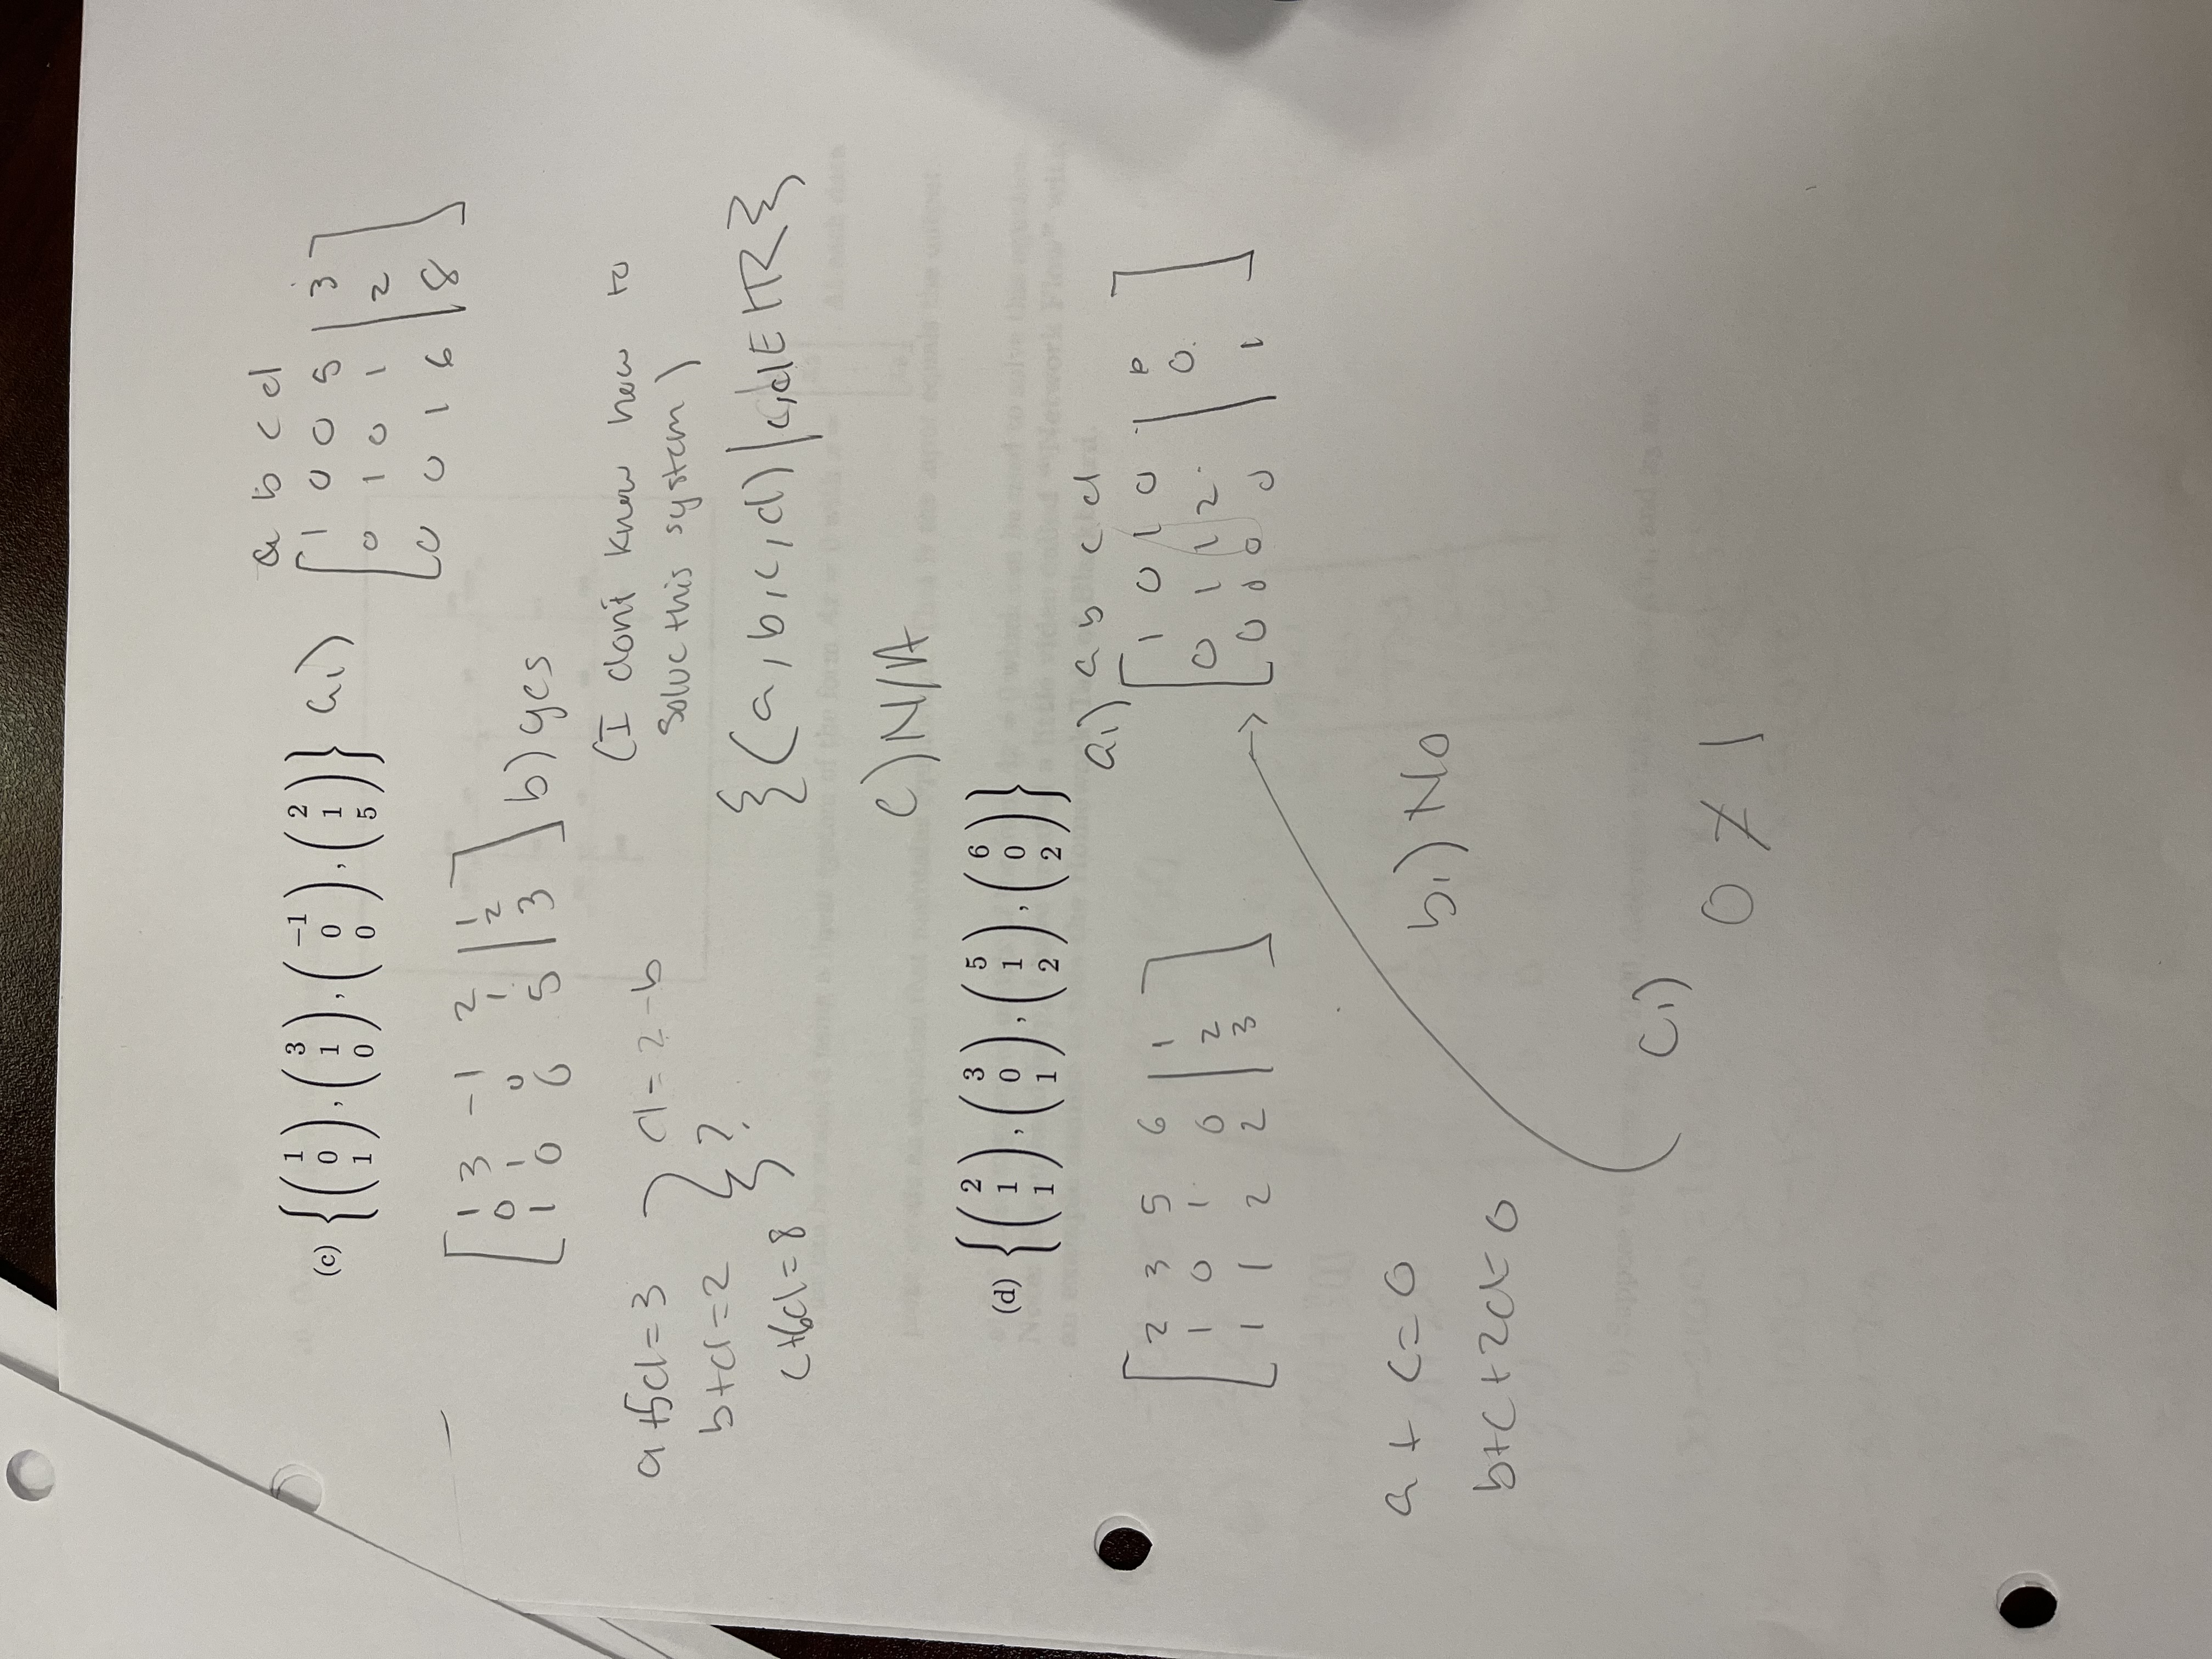 a b c d
(c) {(1 0 1), (3 1 0), (-1 0 0), (2 1 5)} a.)
[1 0 0 5 | 3]
[0 1 0 1 | 2]
[0 0 1 6 | 8]
[1 3 -1 2 | 1]
[0 1 0 1 | 2]
[1 0 0 5 | 3]
b) yes
(I don't know how to
solve this system)
a+5d=3
b+d=2
c+6d=8
} d=2-b
?
{(a,b,c,d)|c,d∈ℝ}
c) N/A
(d) {(2 1 1), (3 0 1), (5 1 2), (6 0 2)}
a.) a b c d
[2 3 5 6 | 1]
[1 0 1 0 | 2]
[1 1 2 2 | 3]
[1 0 1 0 | 0]
[0 1 1 2 | 0]
[0 0 0 0 | 1]
a + c = 0
b+c+2d=0
b.) No
c.)
0 ≠ 1